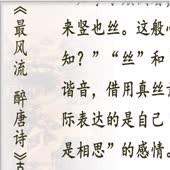 《最风流 醉唐诗》
来竖也丝。这般
知？”“丝”和
谐音，借用真丝
际表达的是自己
是相思”的感情。